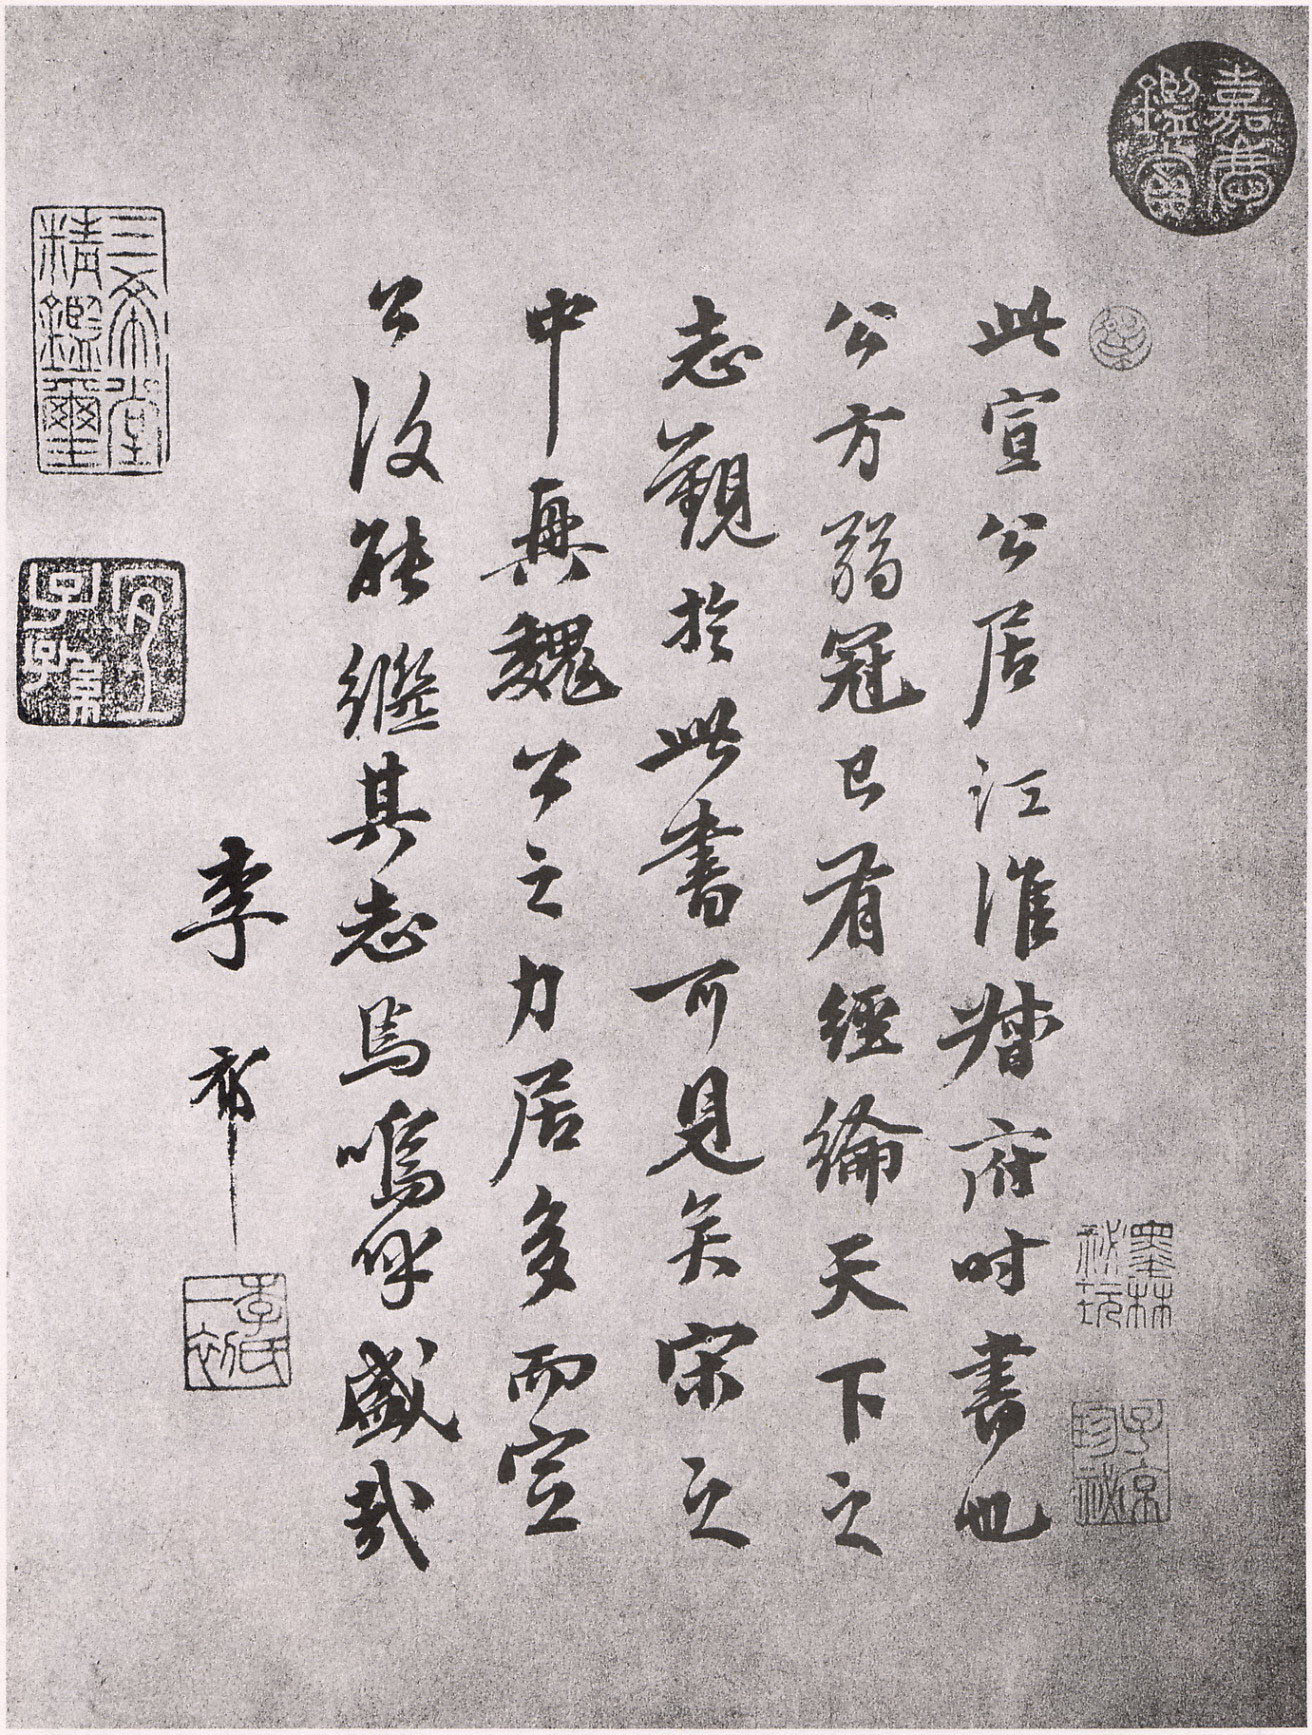 嘉慶鑑賞
此宣公居江淮督府时書也
公方弱冠已有經綸天下之
志觀於此書可見矣宋之
中興魏公之力居多而宣
公復能繼其志焉嗚呼盛哉
李祁
李氏一初
墨林祕玩
子京珍祕
三希堂精鑑璽
宜子孫